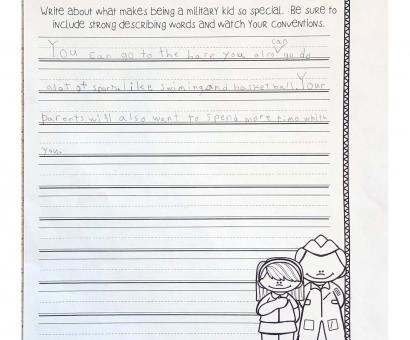 Write about what makes being a military kid so special. Be sure to
include strong describing words and watch your conventions.
can
You can go to the base you also go do
alot of sports like swiming and basketball. Your
parents will also want to spend more time whith
you.